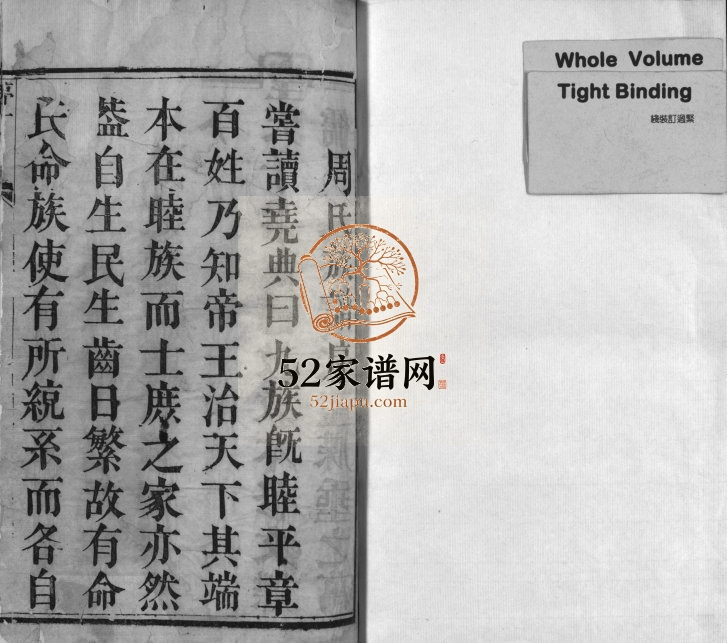 Whole Volume
Tight Binding
綫裝訂過緊
周氏族譜
嘗讀堯典曰九族既睦平章
百姓乃知帝王治天下其端
本在睦族而士庶之家亦然
葢自生民生齒日繁故有命
氏命族使有所統系而各自
52家谱网
52jiapu.com